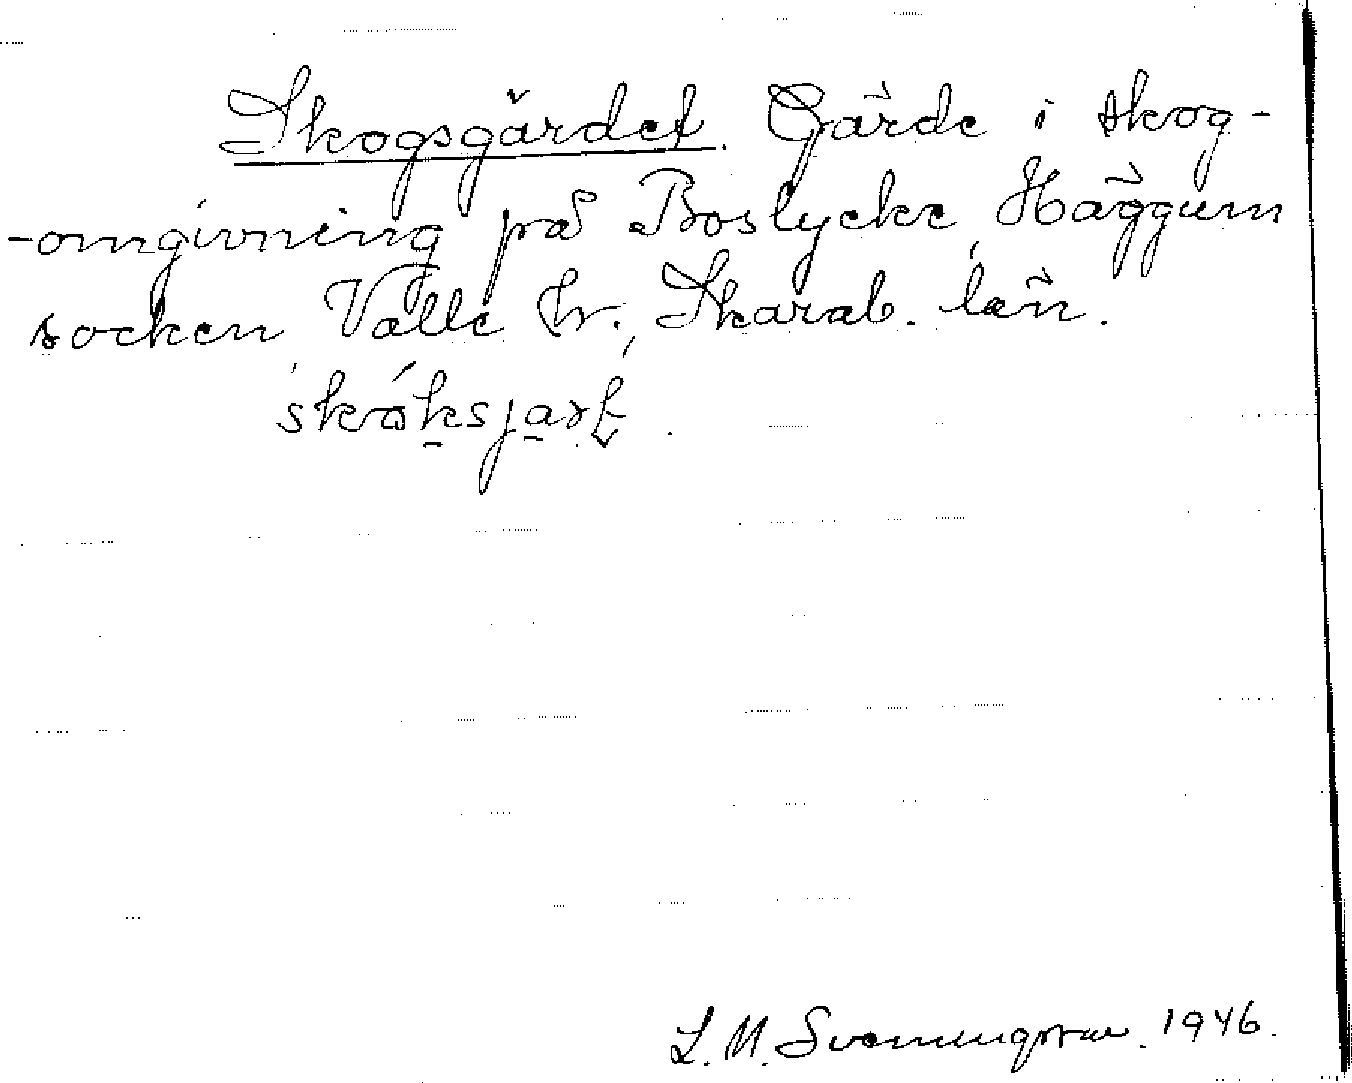 Skogsgärdet. Gärde i skog-
-omgivning på Boslycke, Häggum
socken Valle hr. Skarab. län.
L. M. Svenungsson. 1946.